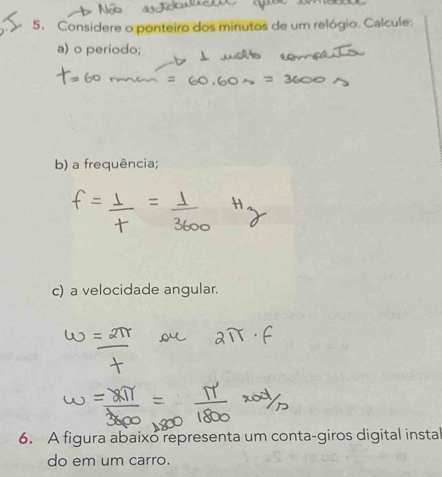 → Não
5. Considere o ponteiro dos minutos de um relógio. Calcule:
a) o período; → 1 volta completa
T = 60 min = 60.60 s = 3600 s
b) a frequência;
f = 1/T = 1/3600 Hz
c) a velocidade angular.
ω = 2π/T ou 2π.f
ω = 2π/3600 1800 = π/1800 rad/s
6. A figura abaixo representa um conta-giros digital instal
do em um carro.